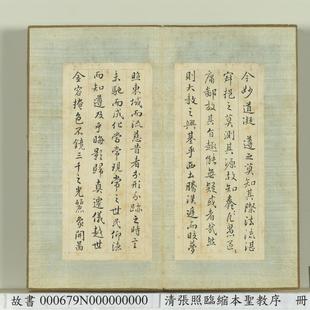 今妙道凝 遵之莫知其際法流湛
寂挹之莫測其源故知蠢〻凡愚區〻
庸鄙投其旨趣能無疑惑者哉然
則大教之興基乎西土騰漢庭而皎夢
照東域而流慈昔者分形分跡之時言
未馳而成化當常現常之世民仰德
而知遵及乎晦影歸真遷儀越世
金容掩色不鏡三千之光麗象開圖
故書 000679N000000000 清張照臨縮本聖教序 冊